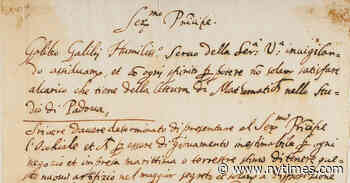 Ser.mo Principe.
Galileo Galilej Humiliss.o Servo della Ser.a V.a invigilando
assiduamente, et con ogni spirito per potere no solam satisfare
alcarico che tiene della lettura di Mathematich nello Stu-
dio di Padova,
Scrivere havere determinato di presentare al Ser.mo Principe
l'Occhiale et per essere di giovamento inestimabile per ogni
negozio et impresa marittima o terrestre stimo di tenere que-
sto nuovo artifizio nel maggior segreto
www.nytimes.com